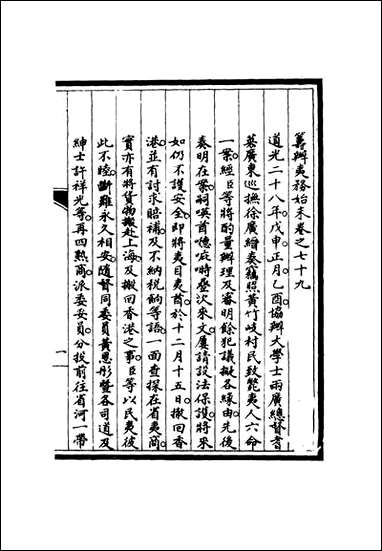 籌辦夷務始末卷之七十九
道光二十八年戊申正月乙酉協辦大學士兩廣總督耆
英廣東巡撫徐廣縉奏竊照黃竹岐村民致斃夷人六命
一案經臣等將酌量辦理及審明餘犯議擬各緣由先後
奏明在案嗣𠸄酋德庇時疊次來文屢請設法保護將來
如仍不護安全即將夷目夷酋於十二月十五日撤回香
港並有討求賠補及不納税餉等語一面查探在省夷商
實亦有將貨物搬赴上海及搬回香港之事臣等以民夷彼
此不睦斷難永久相安隨督同委員黃恩彤暨各司道及
紳士許祥光等再四熟商派委妥員分投前往省河一帶
一